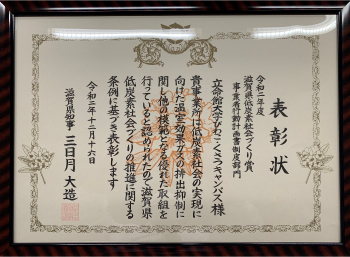 表彰状
令和二年度
滋賀県低炭素社会づくり賞
事業者行動計画書制度部門
立命館大学びわこくさつキャンパス様
貴事業所は低炭素社会の実現に
向けた温室効果ガスの排出抑制に
関し他の模範となる優れた取組を
行っていると認められたので滋賀県
低炭素社会づくりの推進に関する
条例に基づき表彰します
令和二年十二月十六日
滋賀県知事 三日月大造